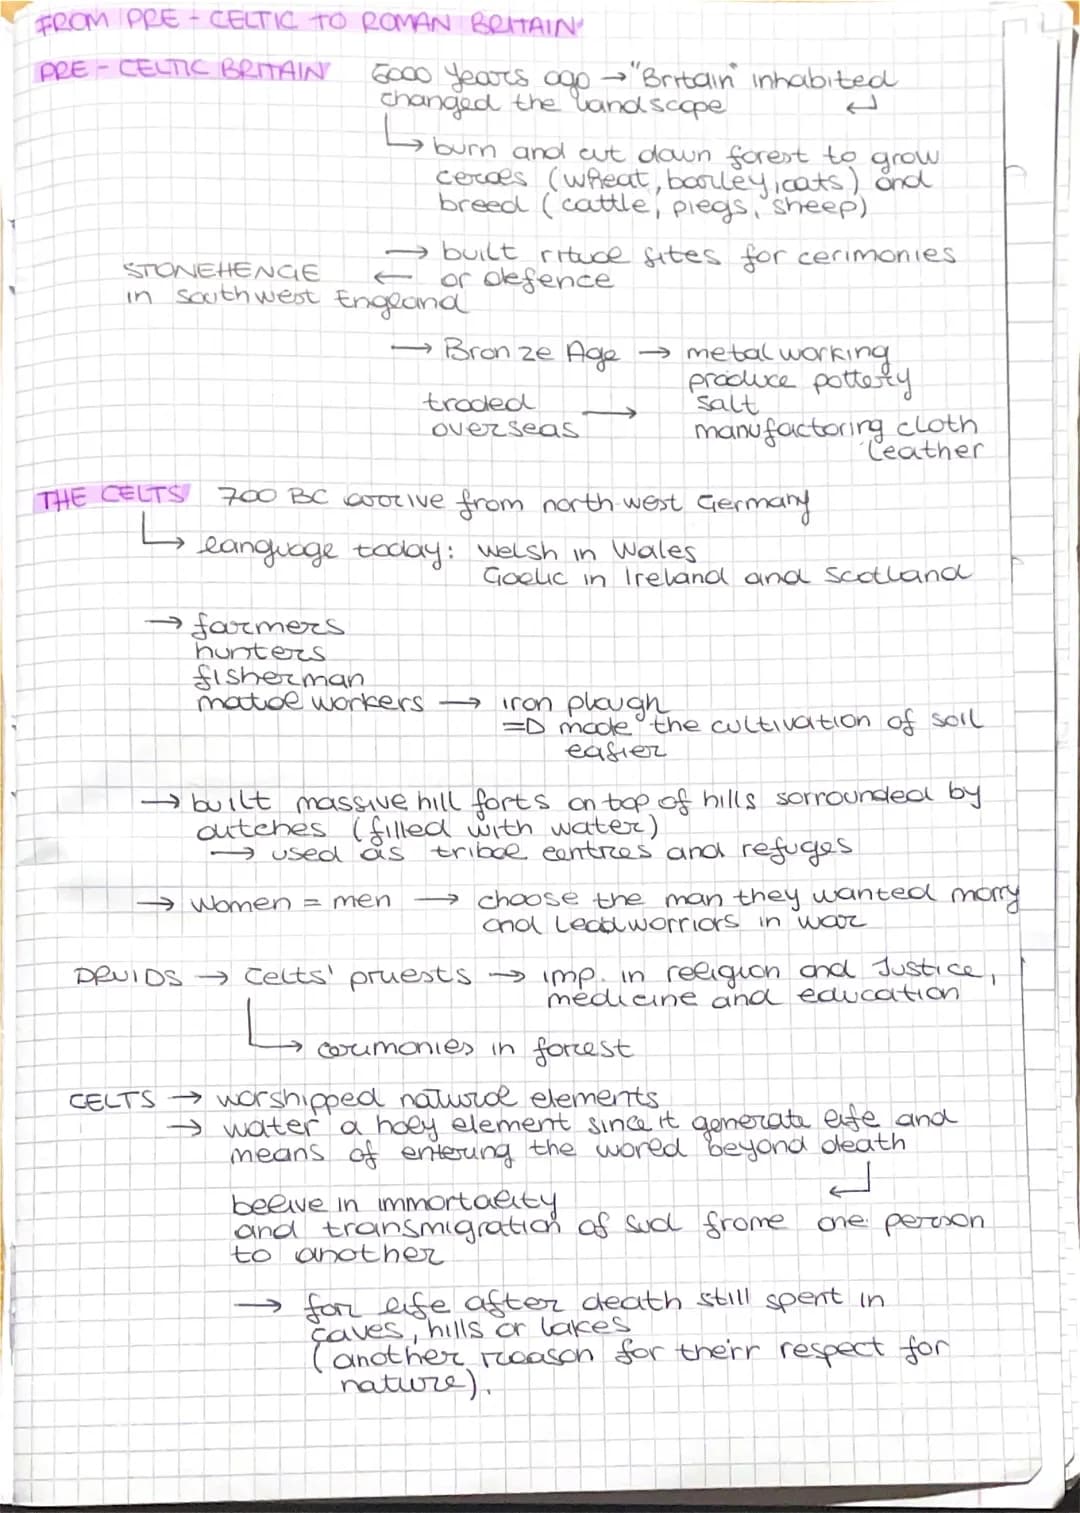 FROM PRE - CELTIC TO ROMAN BRITAIN
PRE - CELTIC BRITAIN 5000 years ago → "Britain" inhabited
changed the landscape
↳ burn and cut down forest to grow
(wheat, barley, oats) and
breed (cattle, piegs, sheep)
→ built sites for cerimonies
or defence
STONEHENGE ←
in southwest England
→ Bronze Age → metal working
produce pottery
salt
traded → manufactoring cloth
overseas leather
THE CELTS 700 BC arrive from north-west Germany
↳ language today: Welsh in Wales
Gaelic in Ireland and Scotland
→ farmers
hunters
fisherman
workers → iron plough
=D made the cultivation of soil
easier
→ built massive hill forts on top of hills sorrounded by
(filled with water)
→ used as tribal centres and refuges
→ Women = men → choose the man they wanted marry
and lead worriors in war
DRUIDS → Celts' priests → imp. in religion and Justice,
medicine and education
↳ in forrest
CELTS → worshipped natural elements
→ water a holy element since it generate life and
means of entering the world beyond death
belive in immortality
and transmigration of frome one person
to another
→ for life after death still spent in
caves, hills or lakes
(another reason for their respect for
nature).